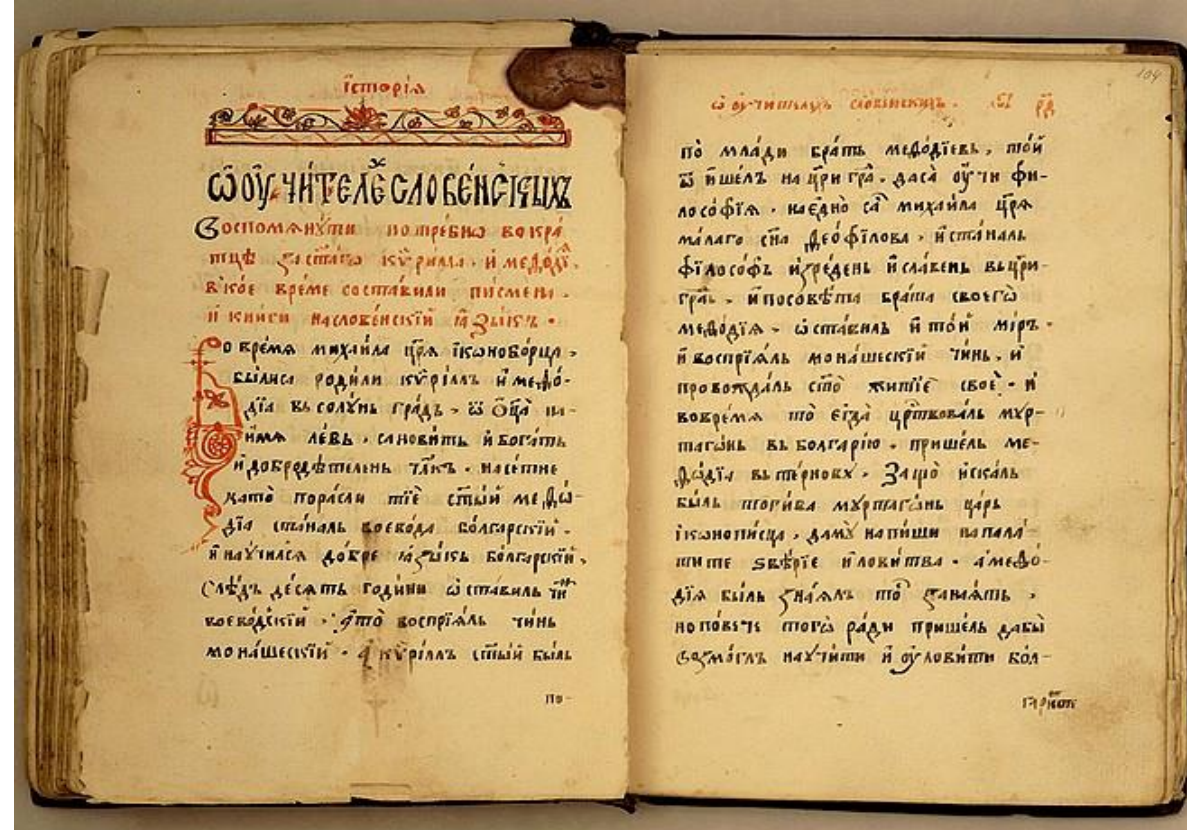 їсторїѧ
Ѿ ОУ҆ЧИ́ТЕЛЕХ СЛОВЕ́НСКЫХЪ
Воспомѧнꙋ́ти потре́бнѡ вокра́
тцѣ за ст҃аго кѷрі́лла. и҆ меѳо́дїа
в̾ ко́е вре́ме соста́вили писмена̀.
и҆ кни́ги на слове́нскїй ꙗ҆зы́къ.
Во вре́мѧ михаи́ла цр҃ѧ їконобо́рца.
бы́лисѧ роди́ли кѷрі́ллъ и҆ меѳо́-
дїа въ солꙋ́нь гра́дъ. ѿ ѻ҆ц҃а̀ на-
и҆мѧ ле́въ. санови́тъ и҆ бога́тъ
и҆ добродѣ́теленъ та́къ. насе́тне
като̀ пора́сли тїѐ ст҃ы́й меѳѡ́-
дїа ста́налъ воево́да бо́лгарскїй.
и҆ наꙋчи́лсѧ до́бре ꙗ҆зы́къ бо́лгарскїй.
слѣ́дъ де́сѧть годи́ни ѡ҆ста́вилъ чи́нъ
воево́дскїй. а҆ то̀ воспрїѧ́лъ чи́нъ
мона́шескїй. а҆ кѷрі́ллъ ст҃ы́й бы́лъ
по-
ѡ ѹчителахъ словенскихъ. рд
104
по̀ мла́ди бра́тъ меѳо́дїевъ. то́й
ѿи҆ше́лъ на цр҃и гра̀. да сѧ̀ ѹ҆́чи фи-
лосо́фїѧ. нае́дно са̀ михаи́ла цр҃ѧ
ма́лаго сн҃а ѳео́филова. и҆ ста́налъ
фїлосо́фъ и҆зре́денъ и҆ сла́венъ въ цр҃и-
гра́дъ. и҆ посовѣ́та бра́та своегѡ̀
меѳо́дїѧ. ѡ҆ста́вилъ и҆ то́й мі́ръ.
и҆ воспрїѧ́лъ мона́шескїй чи́нъ. и҆
провожда́лъ ст҃о̀ житїѐ своѐ. и҆
вовре́мѧ то̀ є҆гда̀ црⷭ҇твовалъ мꙋр-
тагѡ́нъ въ болга́рїю. прише́лъ ме-
ѳѡ́дїа въ те́рновъ. защо̀ и҆ска́лъ
бы́лъ тоги́ва мꙋртагѡ́нъ ца́рь
їконопи́сца. да мꙋ̀ напи́ши на пала́-
тите ѕвѣ́рїе и҆ лови́тва. а҆ меѳо́-
дїа бы́лъ зна́ѧлъ то̀ занаѧ́тъ.
но по́вече тогѡ̀ ра́ди прише́лъ дабы̀
возмо́глъ наꙋчи́ти и҆ ѹ҆лови́ти бол-